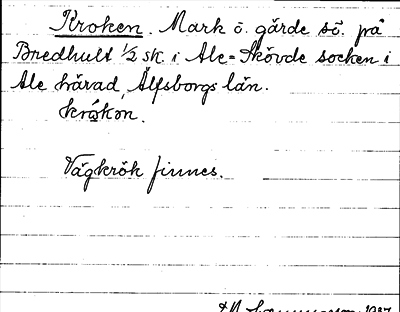 Kroken. Mark ö. gärde sö. på
Bredhult 1/2 sk. i Ale-Skövde socken i
Ale härad, Älfsborgs län.
krókon.
Vägkrök finnes.
1927